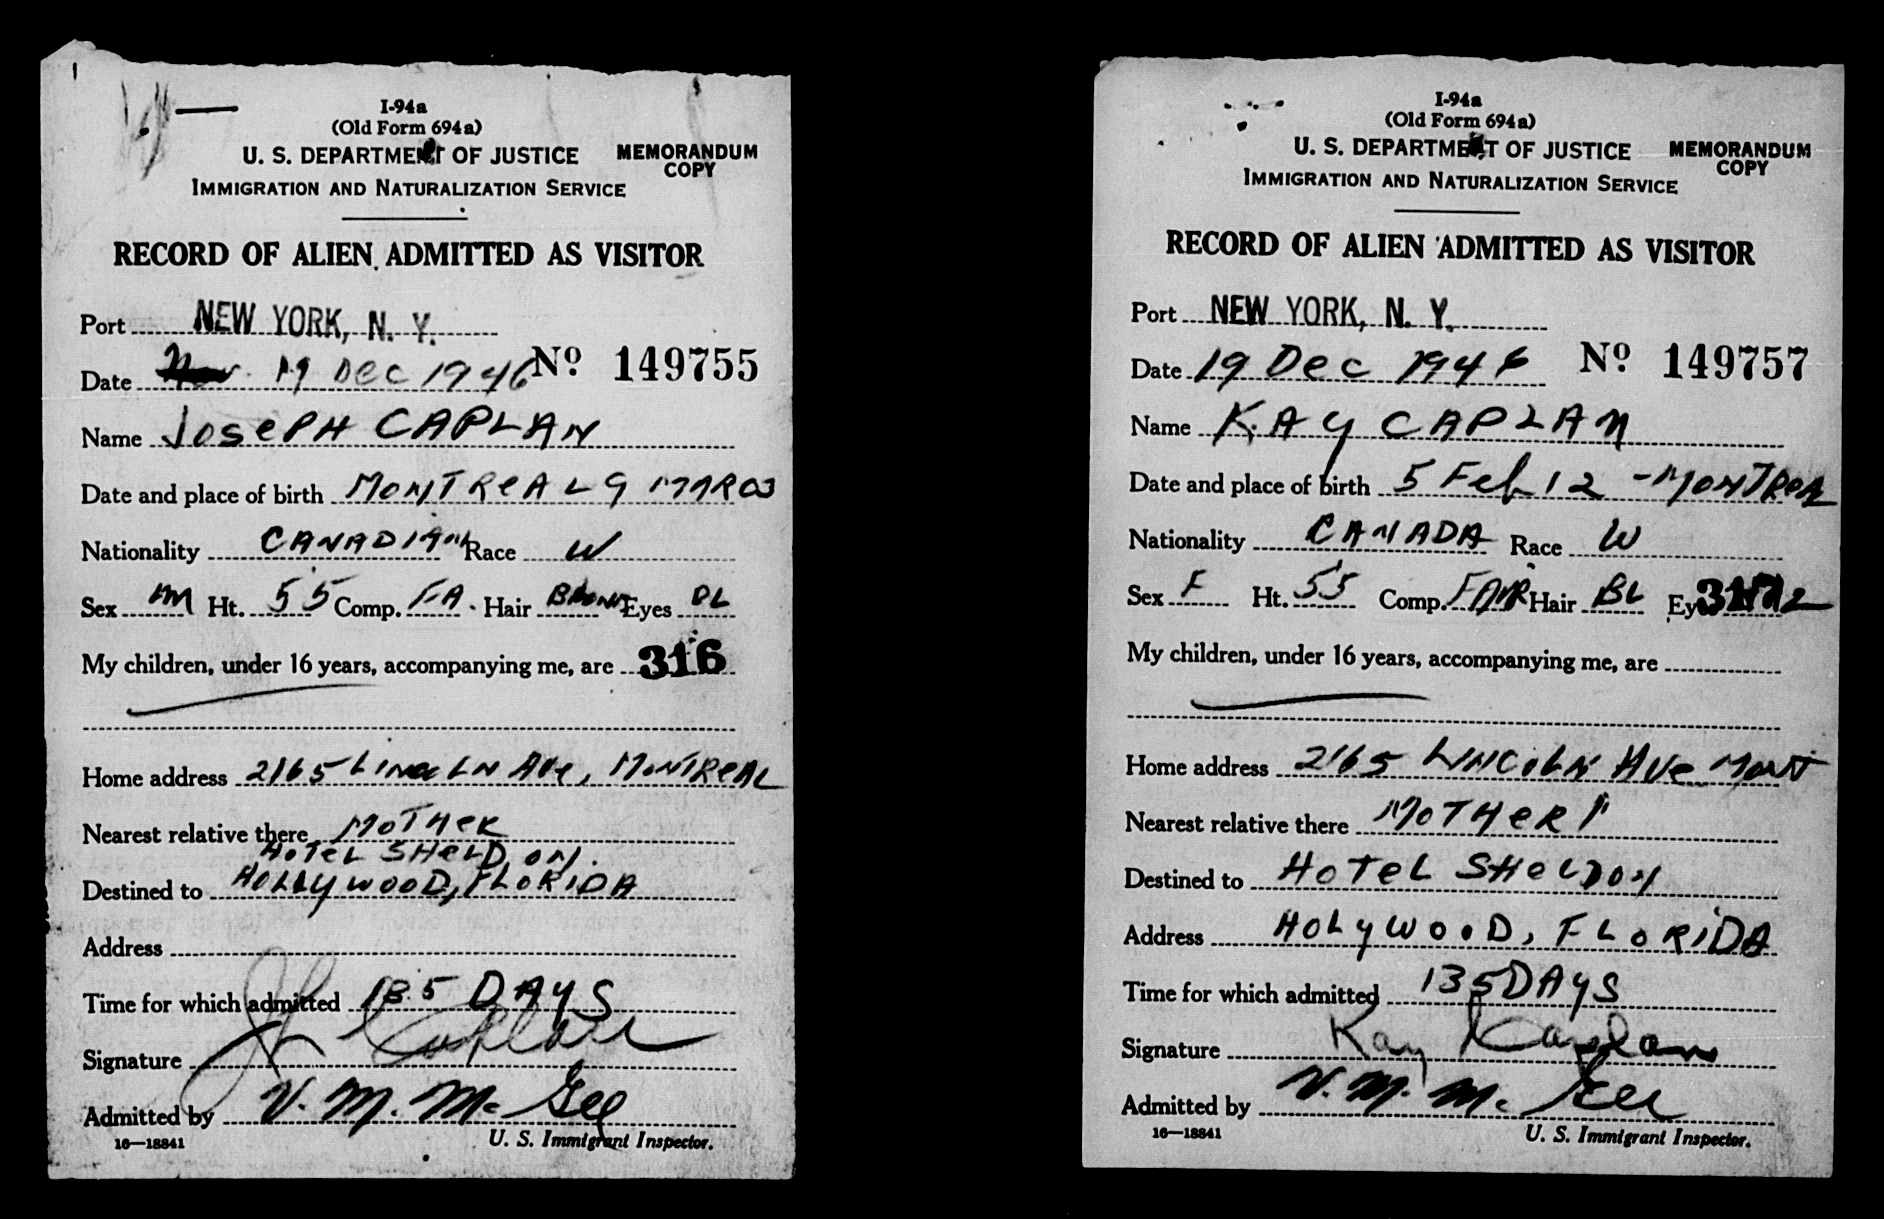 I-94a
(Old Form 694a)
U. S. DEPARTMENT OF JUSTICE
MEMORANDUM COPY
IMMIGRATION AND NATURALIZATION SERVICE
RECORD OF ALIEN ADMITTED AS VISITOR
Port NEW YORK, N. Y.
Date 19 Dec 1946 No 149755
Name JOSEPH CAPLAN
Date and place of birth MONTREAL 9 MAR 03
Nationality CANADIAN Race W
Sex M Ht. 5'5 Comp. FA. Hair BROWN Eyes BL
My children, under 16 years, accompanying me, are 316
Home address 2165 LINCOLN AVe, MONTREAL
Nearest relative there MOTHER
HOTEL SHELDON.
Destined to HOLLYWOOD, FLORIDA
Address
Time for which admitted 135 DAYS
Signature J Caplan
Admitted by V. M. McGee
16—18841 U. S. Immigrant Inspector.
I-94a
(Old Form 694a)
U. S. DEPARTMENT OF JUSTICE
MEMORANDUM COPY
IMMIGRATION AND NATURALIZATION SERVICE
RECORD OF ALIEN ADMITTED AS VISITOR
Port NEW YORK, N. Y.
Date 19 Dec 1946 No 149757
Name KAY CAPLAN
Date and place of birth 5 Feb 12 - MONTREAL
Nationality CANADA Race W
Sex F Ht. 5'5 Comp. FAIR Hair BL Ey 317
My children, under 16 years, accompanying me, are
Home address 2165 LINCOLN AVe MONT
Nearest relative there MOTHER
Destined to HOTEL SHELDON
Address HOLYWOOD, FLORIDA
Time for which admitted 135 DAYS
Signature Kay Kaplan
Admitted by V. M. McGee
16—18841 U. S. Immigrant Inspector.